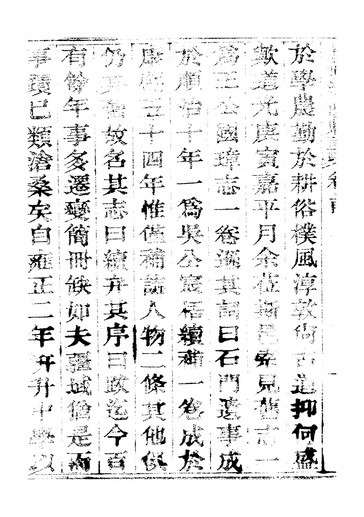 於學農勤於耕俗樸風淳敦尚古道抑何盛
歟道光庚寅嘉平月余蒞斯邑見舊志一
為王公國瑋志一卷遜其詞曰石門遺事成
於順治十年一為吳公宸梧續補一卷成於
康熙三十四年惟僅補訪人物二條其他俱
仍其舊故名其志曰續弁其序曰茲迄今百
有餘年事多遷變簡冊缺如夫疆域猶是而
事蹟已類滄桑矣自雍正二年升中學以